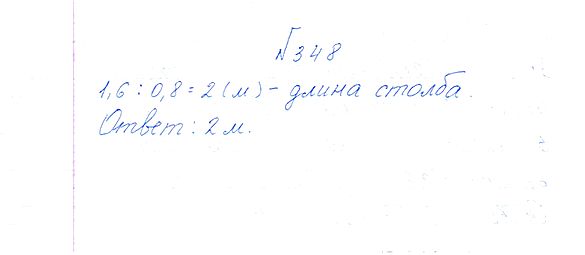 №348
1,6 : 0,8 = 2 (м) - длина столба.
Ответ: 2 м.